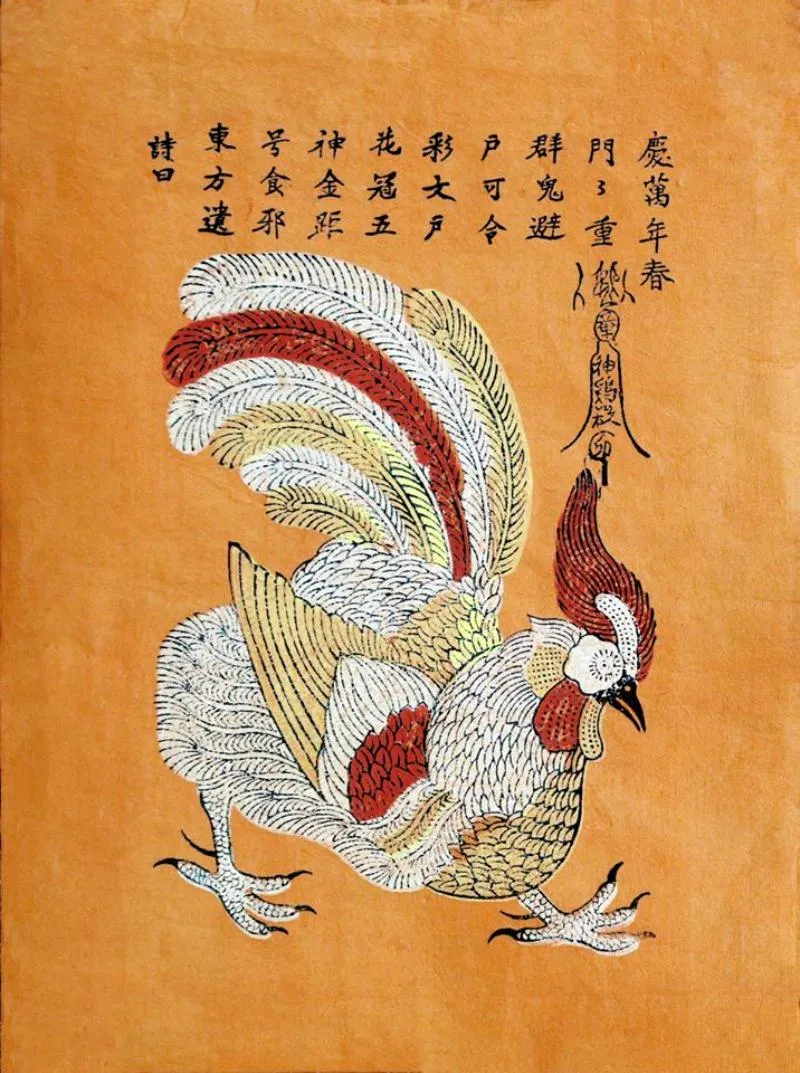 詩曰
東方遺
号食邪
神金距
花冠五
彩文戶
戶可令
群鬼避
門々重
慶萬年春
神鷄